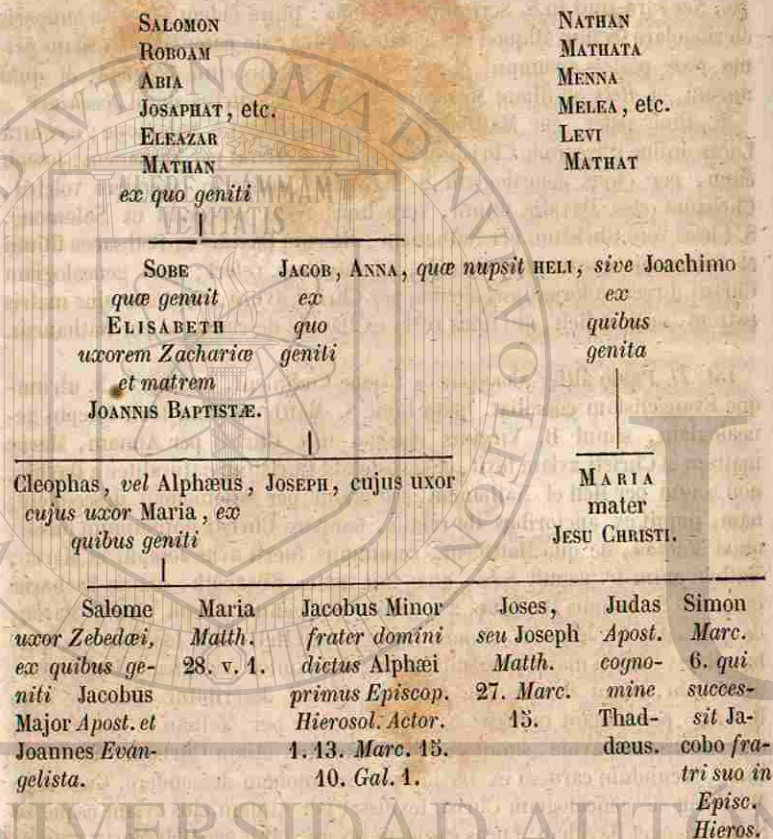 SALOMON
ROBOAM
ABIA
JOSAPHAT, etc.
ELEAZAR
MATHAN
ex quo geniti
NATHAN
MATHATA
MENNA
MELEA, etc.
LEVI
MATHAT
SOBE
quæ genuit
ELISABETH
uxorem Zachariæ
et matrem
JOANNIS BAPTISTÆ.
JACOB, ANNA, quæ nupsit HELI, sive Joachimo
ex
quo
geniti
ex
quibus
genita
Cleophas, vel Alphæus, JOSEPH, cujus uxor
cujus uxor Maria, ex
quibus geniti
MARIA
mater
JESU CHRISTI.
Salome
uxor Zebedæi,
ex quibus ge-
niti Jacobus
Major Apost. et
Joannes Evan-
gelista.
Maria
Matth.
28. v. 1.
Jacobus Minor
frater domini
dictus Alphæi
primus Episcop.
Hierosol. Actor.
1. 13. Marc. 15.
10. Gal. 1.
Joses,
seu Joseph
Matth.
27. Marc.
15.
Judas
Apost.
cogno-
mine
Thad-
dæus.
Simon
Marc.
6. qui
succes-
sit Ja-
cobo fra-
tri suo in
Episc.
Hieros.
ALERE FLAMMAM
VERITATIS
UNIVERSIDAD AUTÓN